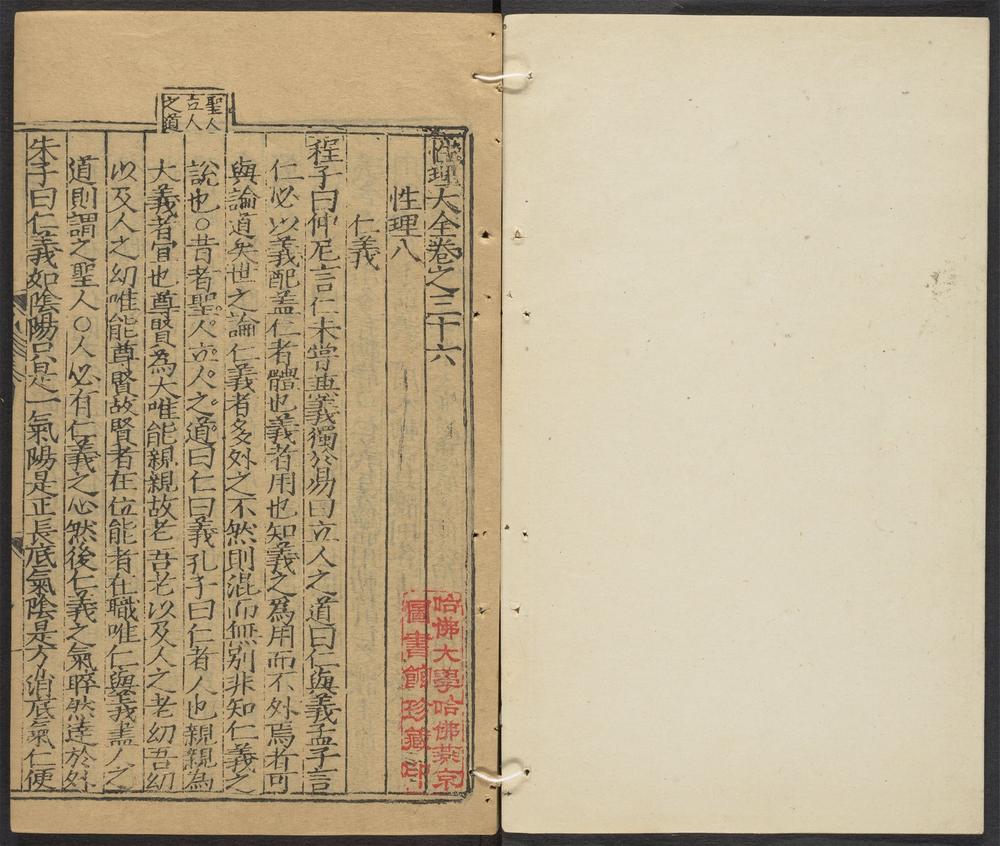 聖人
立人
之道
性理大全卷之三十六
性理八
仁義
程子曰仲尼言仁未嘗兼義獨於易曰立人之道曰仁與義孟子言
仁必以義配盖仁者體也義者用也知義之為用而不外焉者可
與論道矣世之論仁義者多外之不然則混而無别非知仁義之
說也○昔者聖人立人之道曰仁曰義孔子曰仁者人也親親為
大義者宜也尊賢為大唯能親親故老吾老以及人之老幼吾幼
以及人之幼唯能尊賢故賢者在位能者在職唯仁與義盡人之
道則謂之聖人○人必有仁義之心然後仁義之氣睟然達於外
朱子曰仁義如陰陽只是一氣陽是正長底氣陰是方消底氣仁便
哈佛大學哈佛燕京
圖書館珍藏印